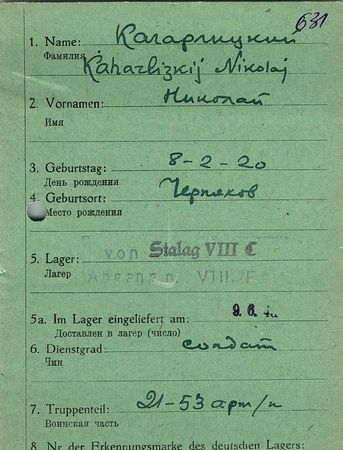 631
1. Name: Кагарлицкий
Фамилия
Kaharlizkij Nikolaj
2. Vornamen: Николай
Имя
3. Geburtstag: 8-2-20
День рождения
4. Geburtsort: Черняхов
Место рождения
5. Lager: von Stalag VIII C
Лагер VIII
5a. Im Lager eingeliefert am: 9. 6.
Доставлен в лагер (число)
6. Dienstgrad: солдат
Чин
7. Truppenteil: 21-53 арт/п
Воинская часть
8. Nr der Erkennungsmarke des deutschen Lagers: